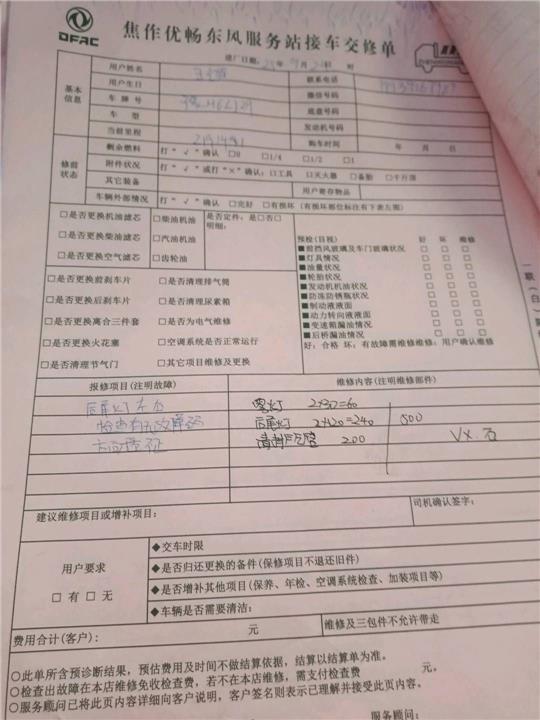 DFAC 焦作优畅东风服务站接车交修单
进厂日期: 年 9月 日 时
基本信息
用户姓名 联系电话
用户生日 微信号码
车牌号 底盘号码
车型 发动机号码
当前里程 购车时间 年 月 日
修前状态
剩余燃料 打"√"确认 □0 □1/4 □1/2 □1
附件状况 打"√"或打"×"确认:□工具 □灭火器 □备胎 □千斤顶
其它装备 用户寄存物品
车辆外部情况 打"√"确认 □完好 □有损坏(有损坏部位标注有下表左圈)
□是否更换机油滤芯 □柴油机油 是否定件:是□否□
明细:
□是否更换柴油滤芯 □汽油机油
□是否更换空气滤芯 □齿轮油
预检(目视) 好 坏 维修
■前挡风玻璃及车门玻璃状况 □ □ □
■灯具情况 □ □ □
■油量状况 □ □ □
■轮胎状况 □ □ □
■发动机机油状况 □ □ □
■防冻防锈瓶状况 □ □ □
■制动液液面 □ □ □
■动力转向液液面 □ □ □
■变速箱漏油情况 □ □ □
■后桥漏油情况 □ □ □
好:合格 坏:有故障需维修维修:用户确认维修
□是否更换前刹车片 □是否清理排气筒
□是否更换后刹车片 □是否清理尿素箱
□是否更换离合三件套 □是否为电气维修
□是否更换火花塞 □空调系统是否正常运行
□是否清理节气门 □其它项目维修及更换
报修项目(注明故障) 维修内容(注明维修部件)
后尾灯左右 2×30=60
检查有无故障码 后尾灯 2×120=240 500
200 VX.石
建议维修项目或增补项目: 司机确认签字:
用户要求
□有 □无
◆交车时限
◆是否归还更换的备件(保修项目不退还旧件)
◆是否增补其他项目(保养、年检、空调系统检查、加装项目等)
◆车辆是否需要清洁:
费用合计(客户): 元 维修及三包件不允许带走
○此单所含预诊断结果,预估费用及时间不做结算依据,结算以结算单为准。
○检查出故障在本店维修免收检查费,若不在本店维修,需支付检查费 元。
○服务顾问已将此页内容详细向客户说明,客户签名则表示已理解并接受此页内容。
服务顾问:
一联(白)